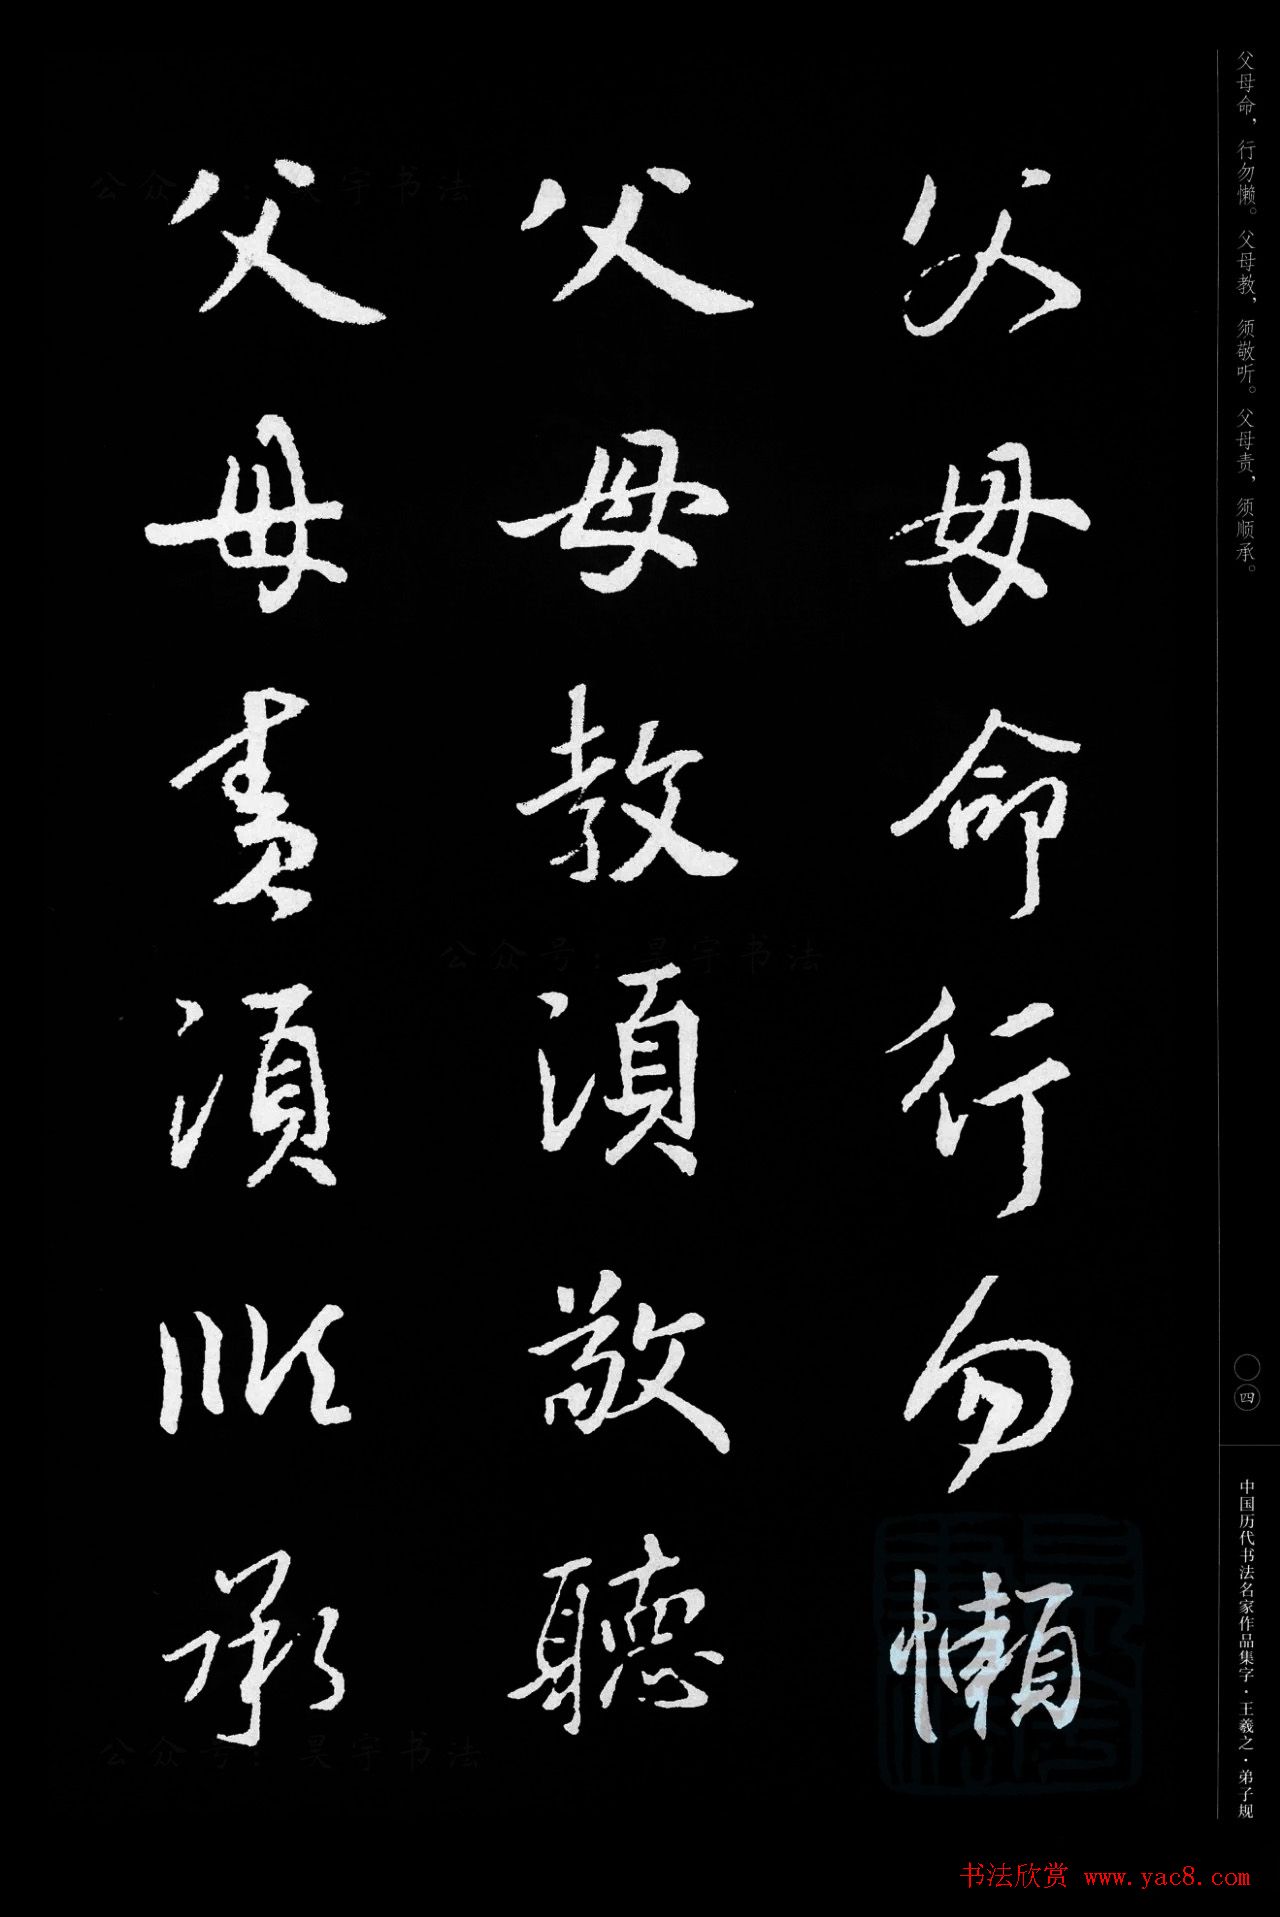 父母命，行勿懒。父母教，须敬听。父母责，须顺承。
父母命行勿懶
父母教須敬聽
父母責須順承
〇四
中国历代书法名家作品集字·王羲之·弟子规
公众号：昊宇书法
公众号：昊宇书法
公众号：昊宇书法
书法欣赏 www.yac8.com